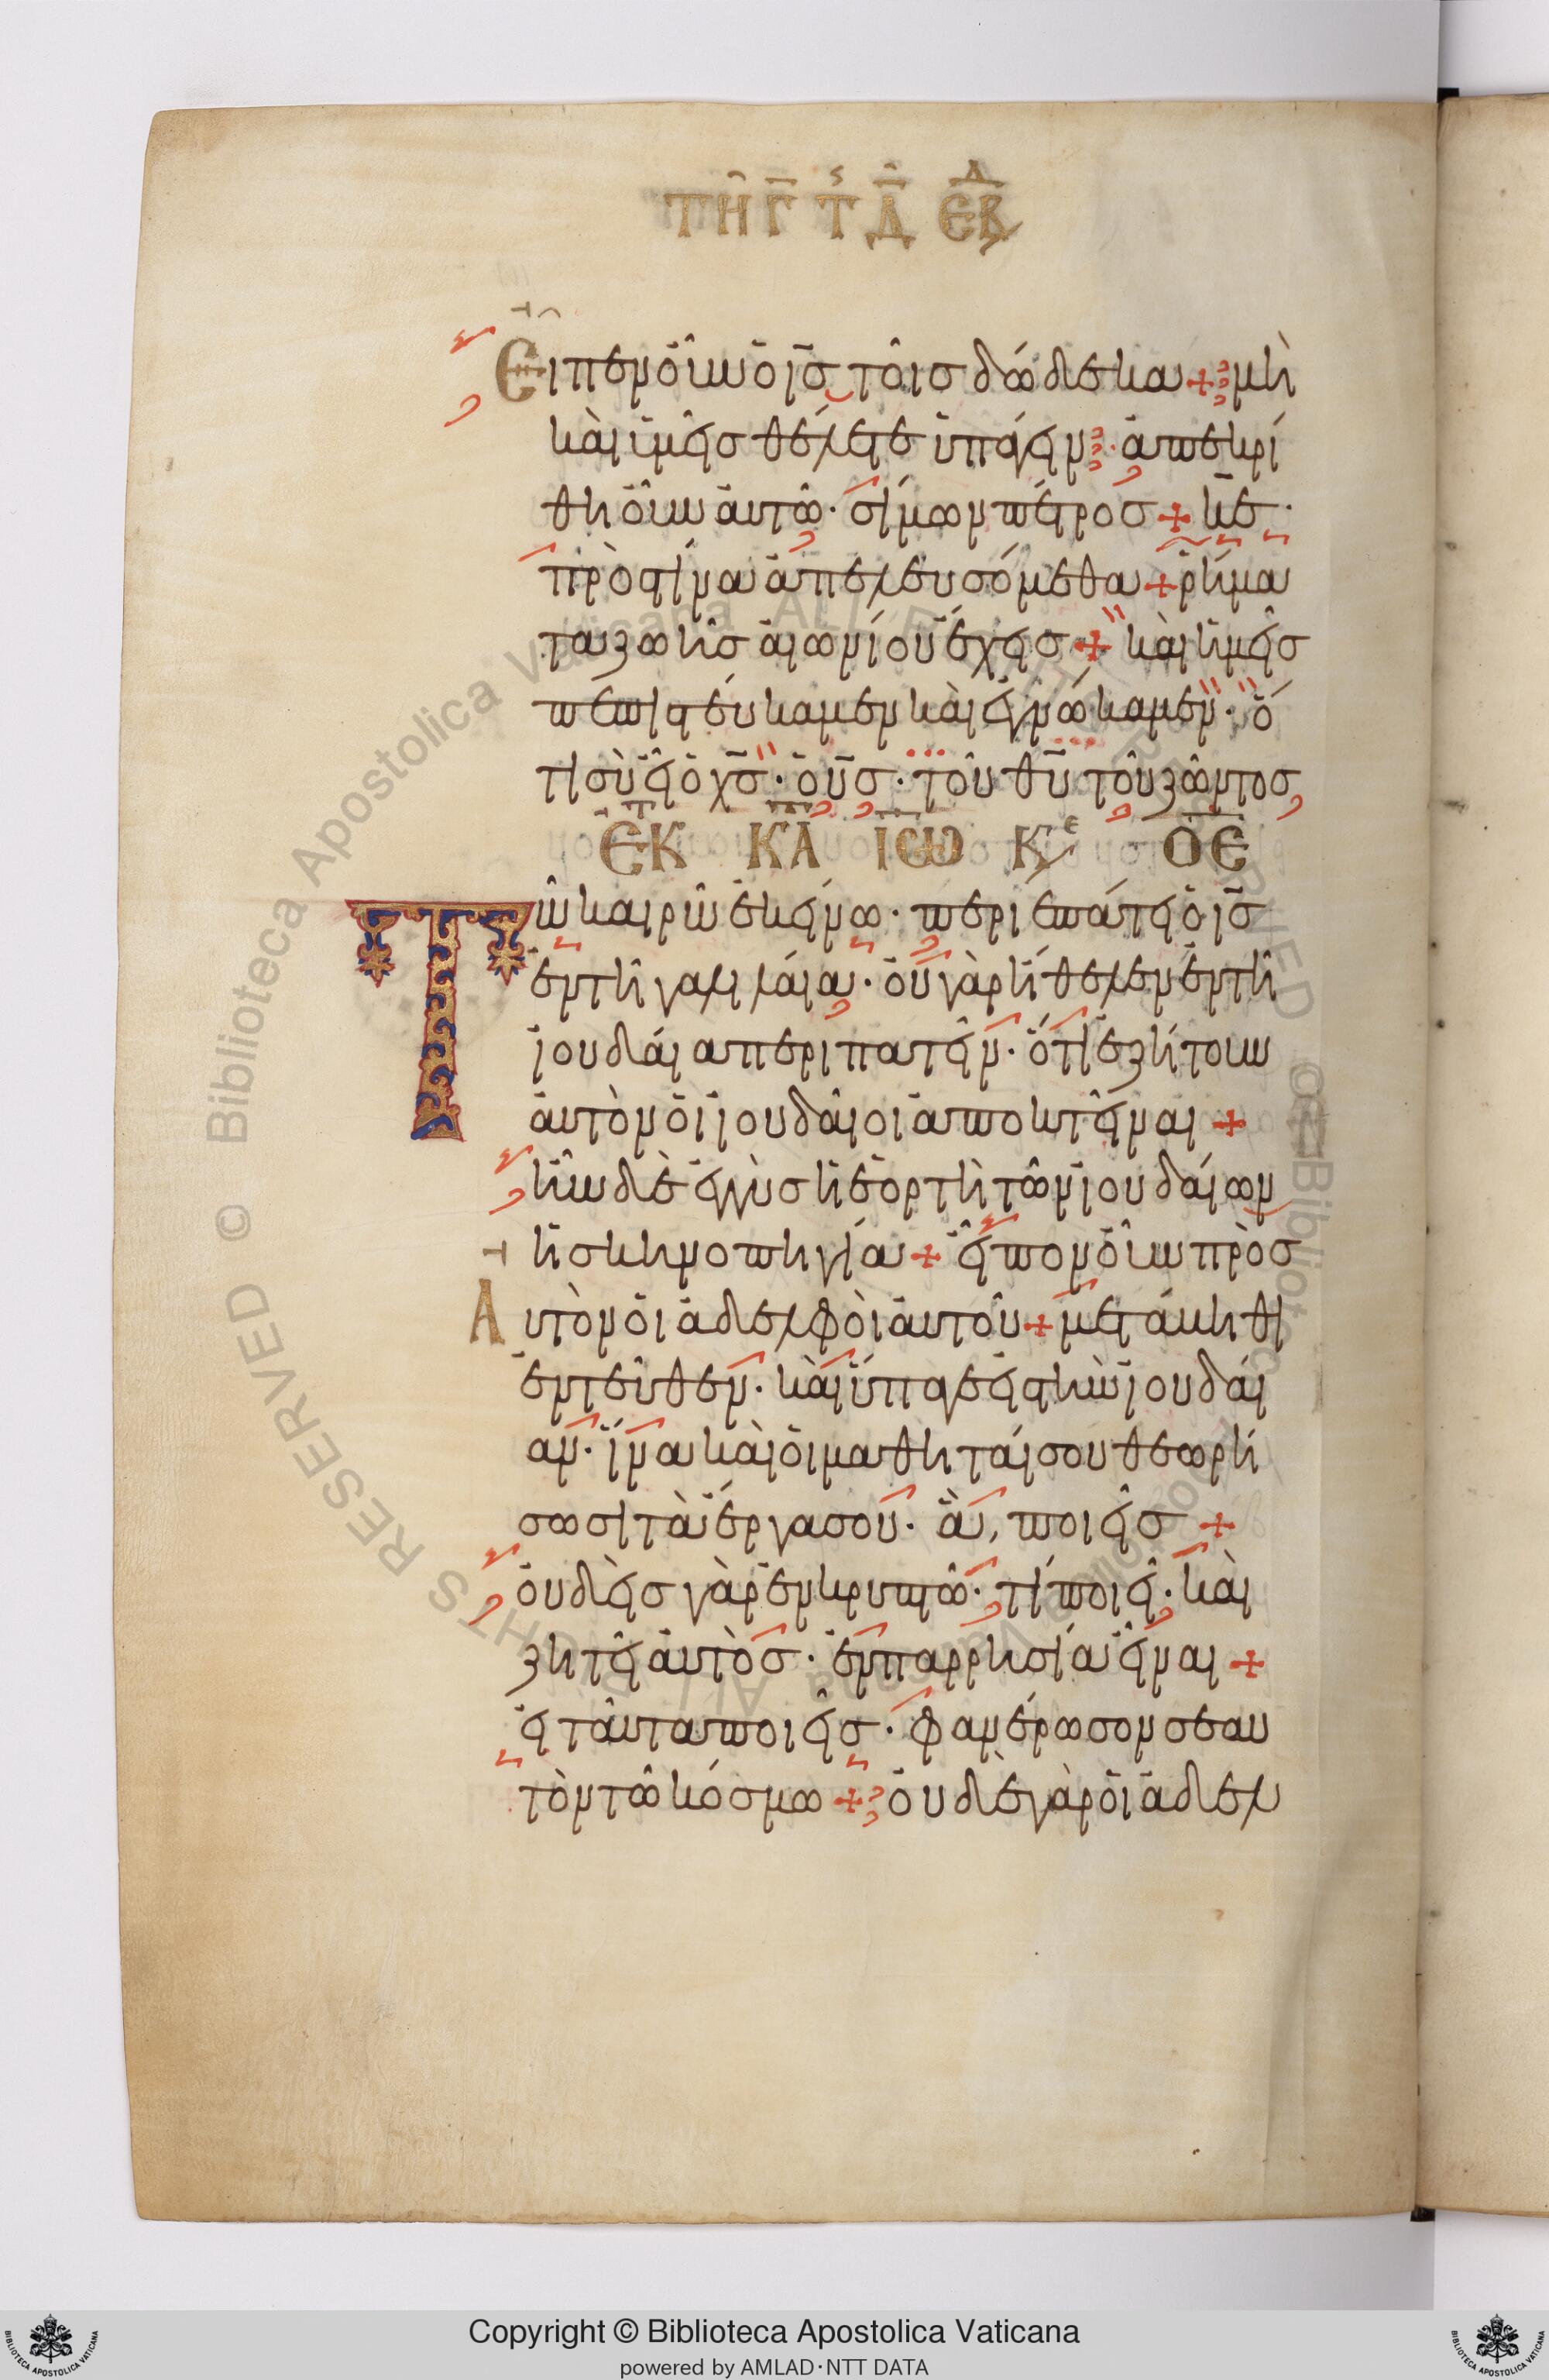 ΤΗ Γ Τ Δ ΕΒΔ
Εἶπεν οὖν ὁ ισ τοῖσ δώδεκα + μὴ
καὶ ὑμεῖσ θέλετε ὑπάγειν · ἀπεκρί
θη οὖν αὐτῶ · σίμων πέτροσ + κε ·
πρὸσ τίνα ἀπελευσόμεθα + ῥήμα
τα ζωῆσ αἰωνίου ἔχεισ + καὶ ἡμεῖσ
πεπιστεύκαμεν καὶ ἐγνώκαμεν · ὅ
τι σὺ εἶ ὁ χσ · ὁ υσ · τοῦ θυ τοῦ ζῶντοσ
ΕΚ Τ ΚΑΤΑ ΙΩ Κε ΟΕ
Τῶ καιρῶ ἐκείνω · περιεπάτει ὁ ισ
ἐν τῆ γαλιλάια · οὐ γὰρ ἤθελεν ἐν τῆ
ἰουδάια περιπατεῖν · ὅτι ἐζήτουν
αὐτὸν ὁι ἰουδαῖοι ἀποκτεῖναι +
ἦν δὲ ἐγγὺσ ἡ ἑορτὴ τῶν ἰουδάιων
ἡ σκηνοπηγία + εἶπον οὖν πρὸσ
Αυτὸν ὁι ἀδελφὸι αὐτοῦ + μετάβηθι
ἐντεῦθεν · καὶ ὕπαγε εἰσ τὴν ἰουδάι
αν · ἵνα καὶ ὁι μαθηταί σου θεωρή
σωσι τὰ ἔργα σου · ἃ ποιεῖσ +
ὀυδεὶσ γὰρ ἐν κρυπτῶ · τί ποιεῖ · καὶ
ζητεῖ αὐτὸσ · ἐν παρρησία εἶναι +
εἰ ταῦτα ποιεῖσ · φανέρωσον σεαυ
τὸν τῶ κόσμω + ὀυδὲ γὰρ ὁι ἀδελ
Copyright © Biblioteca Apostolica Vaticana
powered by AMLAD·NTT DATA